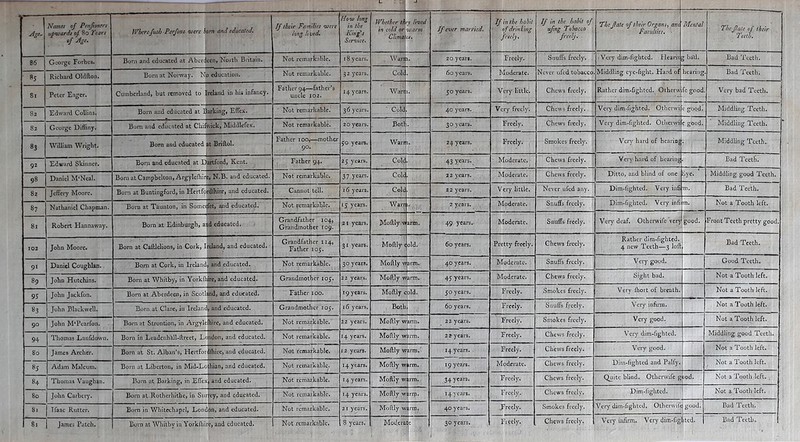 Age. | Names of Pensioners upwards of 80 Years of Age. | Where such Persons were born and educated. | If their Families were long lived. | How long in the King's Service. | Whether they lived in cold or warm Climates. | If ever married. | If in the habit of drinking freely. | If in the habit of using Tobacco freely. | The state of their Organs, and Mental Faculties. | The state of their Teeth.
86 | George Forbes. | Born and educated at Aberdeen, North Britain. | Not remarkable. | 18 years. | Warm. | 20 years. | Freely. | Snuffs freely. | Very dim-sighted. Hearing bad. | Bad Teeth.
85 | Richard Oldston. | Born at Norway. No education. | Not remarkable. | 32 years. | Cold. | 60 years. | Moderate. | Never used tobacco. | Middling eye-sight. Hard of hearing. | Bad Teeth.
81 | Peter Eager. | Cumberland, but removed to Ireland in his infancy. | Father 94—father's uncle 102. | 14 years. | Warm. | 50 years. | Very little. | Chews freely. | Rather dim-sighted. Otherwise good. | Very bad Teeth.
82 | Edward Colins. | Born and educated at Barking, Essex. | Not remarkable. | 36 years. | Cold. | 40 years. | Very freely. | Chews freely. | Very dim-sighted. Otherwise good. | Middling Teeth.
82 | George Diffiny. | Born and educated at Chiswick, Middlesex. | Not remarkable. | 20 years. | Both. | 30 years. | Freely. | Chews freely. | Very dim-sighted. Otherwise good. | Middling Teeth.
83 | William Wright. | Born and educated at Bristol. | Father 100,—mother 90. | 50 years. | Warm. | 24 years. | Freely. | Smokes freely. | Very hard of hearing. | Middling Teeth.
92 | Edward Skinner. | Born and educated at Dartford, Kent. | Father 94. | 25 years. | Cold. | 43 years. | Moderate. | Chews freely. | Very hard of hearing. | Bad Teeth.
98 | Daniel M'Neal. | Born at Campbelton, Argyleshire, N.B. and educated. | Not remarkable. | 37 years. | Cold. | 22 years. | Moderate. | Chews freely. | Ditto, and blind of one Eye. | Middling good Teeth.
82 | Jeffery Moore. | Born at Buntingford, in Hertfordshire, and educated. | Cannot tell. | 16 years. | Cold. | 22 years. | Very little. | Never used any. | Dim-sighted. Very infirm. | Bad Teeth.
87 | Nathaniel Chapman. | Born at Taunton, in Somerset, and educated. | Not remarkable. | 15 years. | Warm. | 2 years. | Moderate. | Snuffs freely. | Dim-sighted. Very infirm. | Not a Tooth left.
81 | Robert Hannaway. | Born at Edinburgh, and educated. | Grandfather 104, Grandmother 109. | 21 years. | Mostly warm. | 49 years. | Moderate. | Snuffs freely. | Very deaf. Otherwise very good. | Front Teeth pretty good.
102 | John Moore. | Born at Castlelions, in Cork, Ireland, and educated. | Grandfather 114, Father 105. | 31 years. | Mostly cold. | 60 years. | Pretty freely. | Chews freely. | Rather dim-sighted. 4 new Teeth—3 lost. | Bad Teeth.
91 | Daniel Coughlan. | Born at Cork, in Ireland, and educated. | Not remarkable. | 30 years. | Mostly warm. | 40 years. | Moderate. | Snuffs freely. | Very good. | Good Teeth.
89 | John Hutchins. | Born at Whitby, in Yorkshire, and educated. | Grandmother 105. | 22 years. | Mostly warm. | 45 years. | Moderate. | Chews freely. | Sight bad. | Not a Tooth left.
95 | John Jackson. | Born at Aberdeen, in Scotland, and educated. | Father 100. | 19 years. | Mostly cold. | 50 years. | Freely. | Smokes freely. | Very short of breath. | Not a Tooth left.
83 | John Blackwell. | Born at Clare, in Ireland, and educated. | Grandmother 105. | 16 years. | Both. | 60 years. | Freely. | Snuffs freely. | Very infirm. | Not a Tooth left.
90 | John M'Pearson. | Born at Strontian, in Argyleshire, and educated. | Not remarkable. | 12 years. | Mostly warm. | 22 years. | Freely. | Smokes freely. | Very good. | Not a Tooth left.
94 | Thomas Lansdown. | Born in Leadenhall-street, London, and educated. | Not remarkable. | 14 years. | Mostly warm. | 22 years. | Freely. | Chews freely. | Very dim-sighted. | Middling good Teeth.
80 | James Archer. | Born at St. Alban's, Hertfordshire, and educated. | Not remarkable. | 12 years. | Mostly warm. | 14 years. | Freely. | Chews freely. | Very good. | Not a Tooth left.
85 | Adam Malcum. | Born at Liberton, in Mid-Lothian, and educated. | Not remarkable. | 14 years. | Mostly warm. | 19 years. | Moderate. | Chews freely. | Dim-sighted and Palsy. | Not a Tooth left.
84 | Thomas Vaughan. | Born at Barking, in Essex, and educated. | Not remarkable. | 14 years. | Mostly warm. | 34 years. | Freely. | Chews freely. | Quite blind. Otherwise good. | Not a Tooth left.
80 | John Carbery. | Born at Rotherhithe, in Surrey, and educated. | Not remarkable. | 14 years. | Mostly warm. | 14 years. | Freely. | Chews freely. | Dim-sighted. | Not a Tooth left.
81 | Isaac Rutter. | Born in Whitechapel, London, and educated. | Not remarkable. | 21 years. | Mostly warm. | 40 years. | Freely. | Smokes freely. | Very dim-sighted. Otherwise good. | Bad Teeth.
81 | James Patch. | Born at Whitby in Yorkshire, and educated. | Not remarkable. | 8 years. | Moderate | 50 years. | Freely. | Chews freely. | Very infirm. Very dim-sighted. | Bad Teeth.